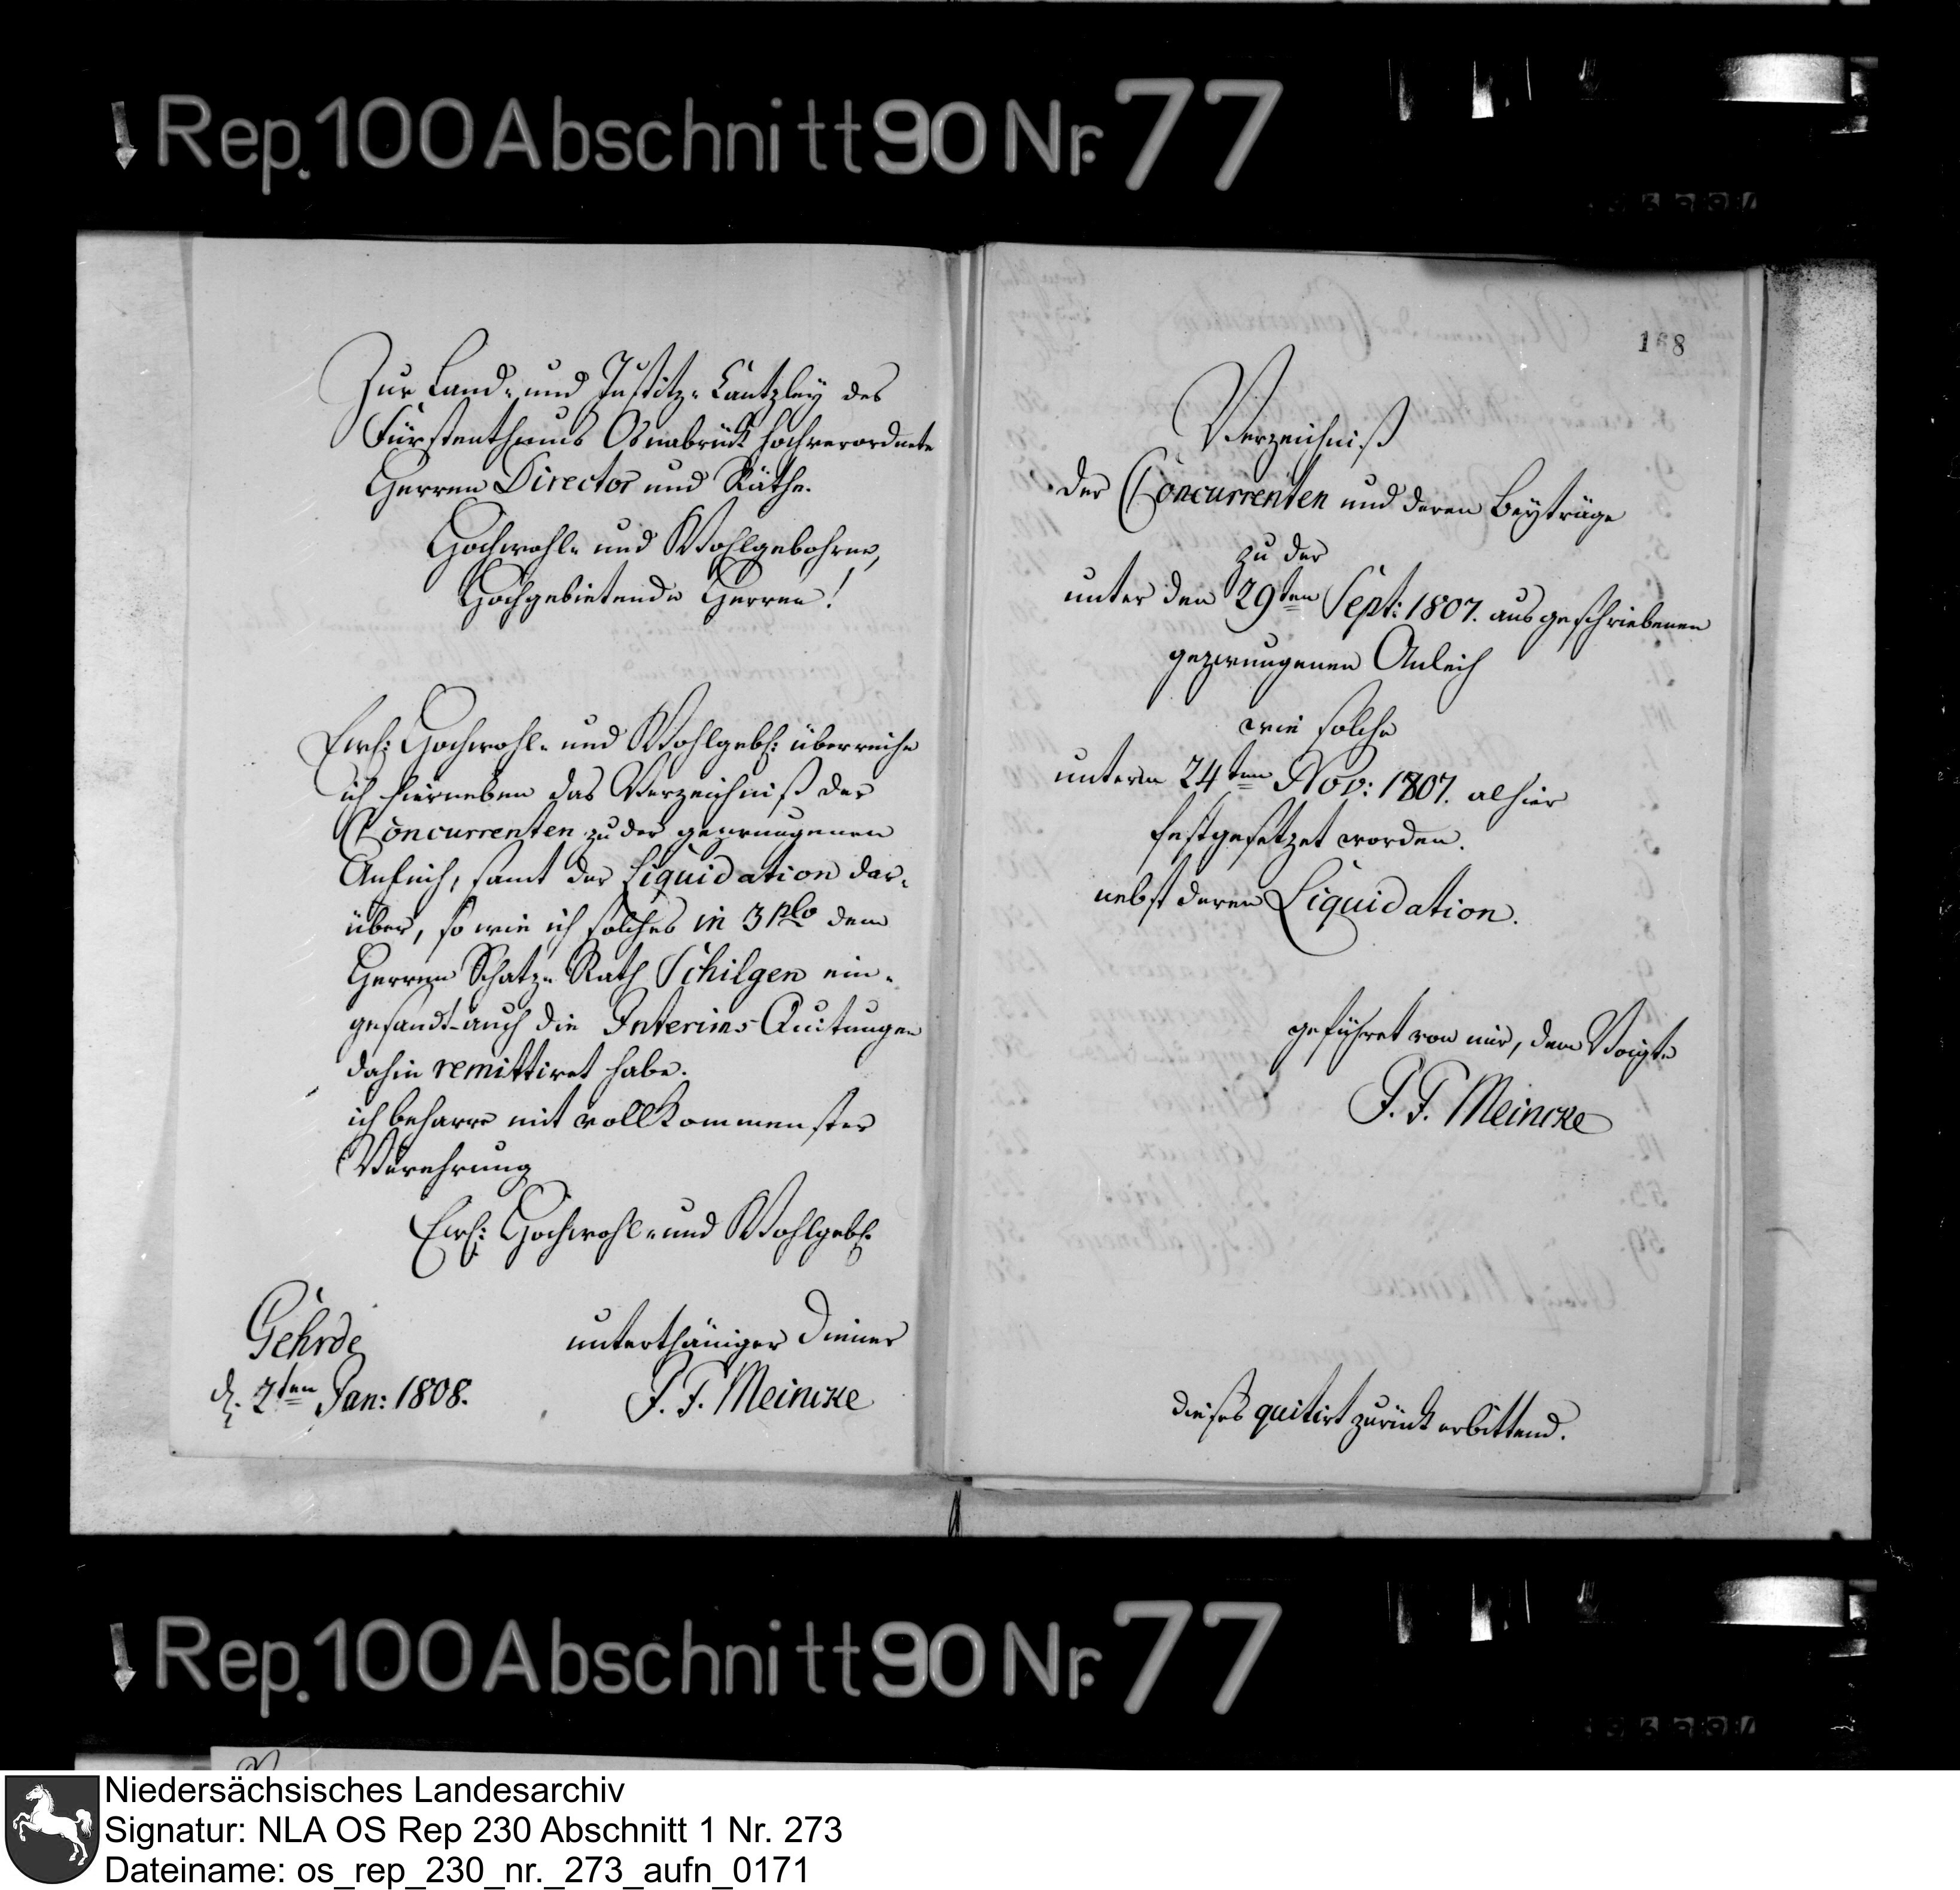 Rep. 100 Abschnitt 90 Nr. 77
Zur Land- und Justitz-Cantzley des
Fürstenthums Osnabrück hochverordnete
Herren Director und Räthe.
Hochwohl- und Wohlgebohrne,
Hochgebietende Herren!
Ewh: Hochwohl- und Wohlgebh: überreiche
ich hierneben das Verzeichniß der
Concurrenten zu der gezwungenen
Anleih, samt der Liquidation dar-
über, so wie ich solches in 3plo dem
Herren Schatz-Rath Schilgen ein-
gesandt auch die Interims-Quitungen
dahin remittiret habe.
ich beharre mit vollkommenster
Verehrung
Ewh: Hochwohl- und Wohlgebh.
Gehrde
d. 2ten Jan: 1808.
unterthäniger Diener
F. F. Meincke
168
Verzeichniß
der Concurrenten und deren Beyträge
zu der
unter den 29ten Sept: 1807. ausgeschriebenen
gezwungenen Anleih
wie solche
unterm 24ten Nov: 1807. alhier
festgesetzet worden.
nebst deren Liquidation.
geführet von mir, dem Voigte
F. F. Meincke
dieses quitirt zurück erbittend.
Rep. 100 Abschnitt 90 Nr. 77
Niedersächsisches Landesarchiv
Signatur: NLA OS Rep 230 Abschnitt 1 Nr. 273
Dateiname: os_rep_230_nr._273_aufn_0171